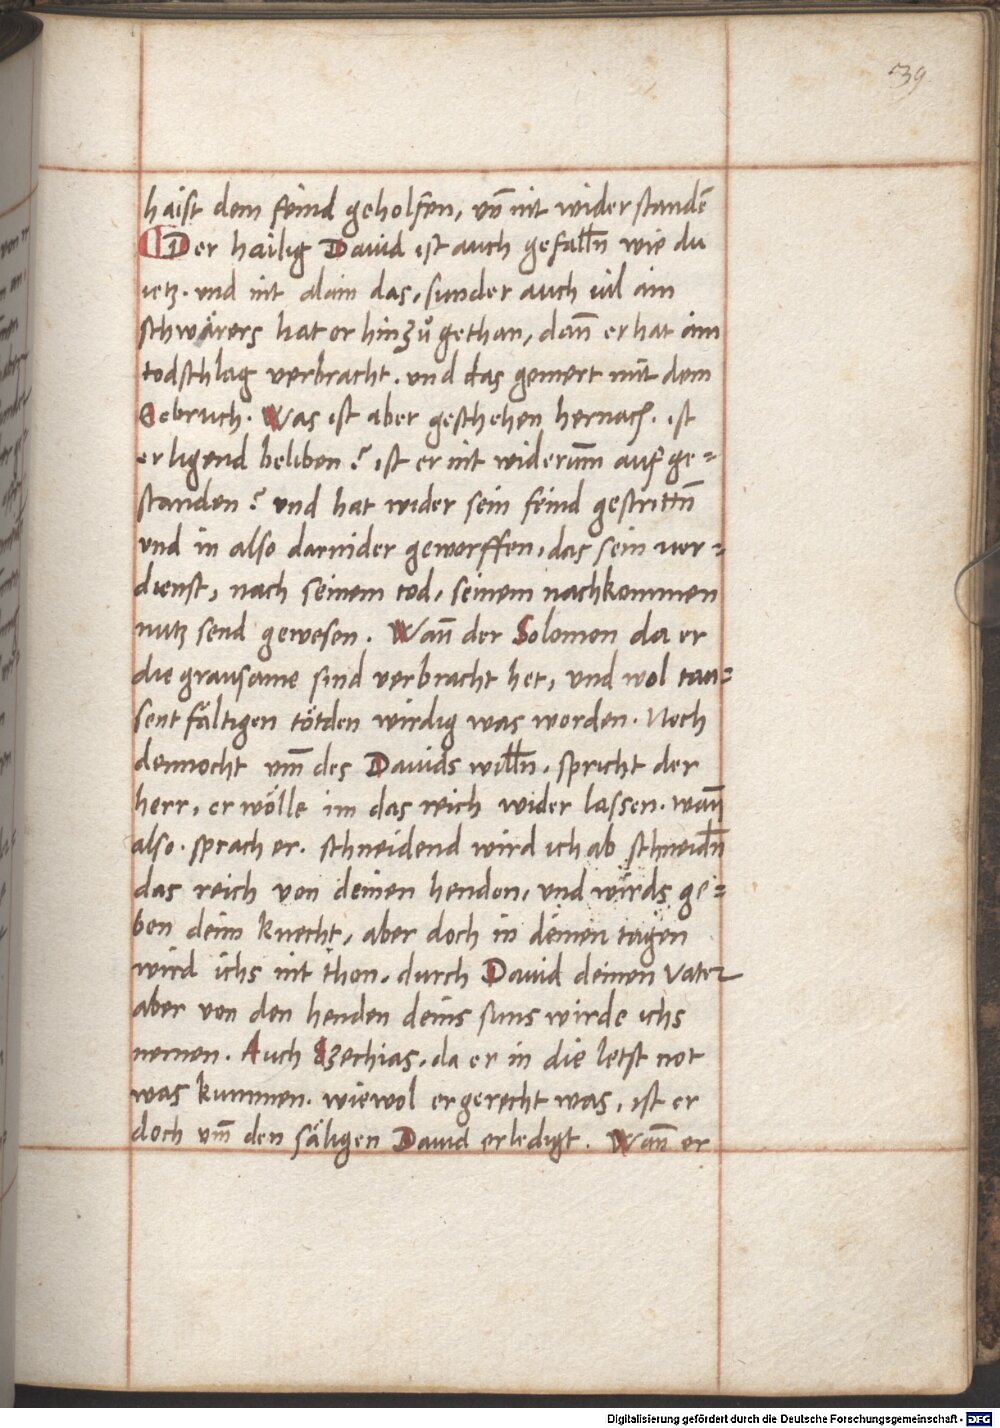 39
haist dem feind geholfen, uñ nit wider standē
Der hailig Dauid ist auch gefalln̄ wie du
ietz. und nit alain das, sunder auch uil ain
schwärers hat er hinzů gethan, dañ er hat ain
todschlag verbracht. und das gemert mit dem
Eebruch. Was ist aber geschehen hernach. ist
er ligend beliben? ist er nit widerum̄ auf ge=
standen? und hat wider sein feind gestrittn̄
und in also darnider geworffen, das sein ver=
dienst, nach seinem tod, seinem nachkommen
nutz send gewesen. Wañ der Solomon da er
die grausame sind verbracht het, und wol tau=
sent fältigen tötden wirdig was worden. Noch
dennocht um̄ des Dauids willn̄, spricht der
herr, er wölle im das reich wider lassen. wañ
also. sprach er. schneidend wird ich ab schneidn̄
das reich von deinen henden, und wirds ge=
ben deim knecht, aber doch in deinen tagen
wird ichs nit thon, durch Dauid deinen vater
aber von den henden deins suns wirde ichs
nemen. Auch Ezechias, da er in die letst not
was kummen. wiewol er gerecht was, ist er
doch um̄ den säligen Dauid erledigt. Wañ er
Digitalisierung gefördert durch die Deutsche Forschungsgemeinschaft - DFG